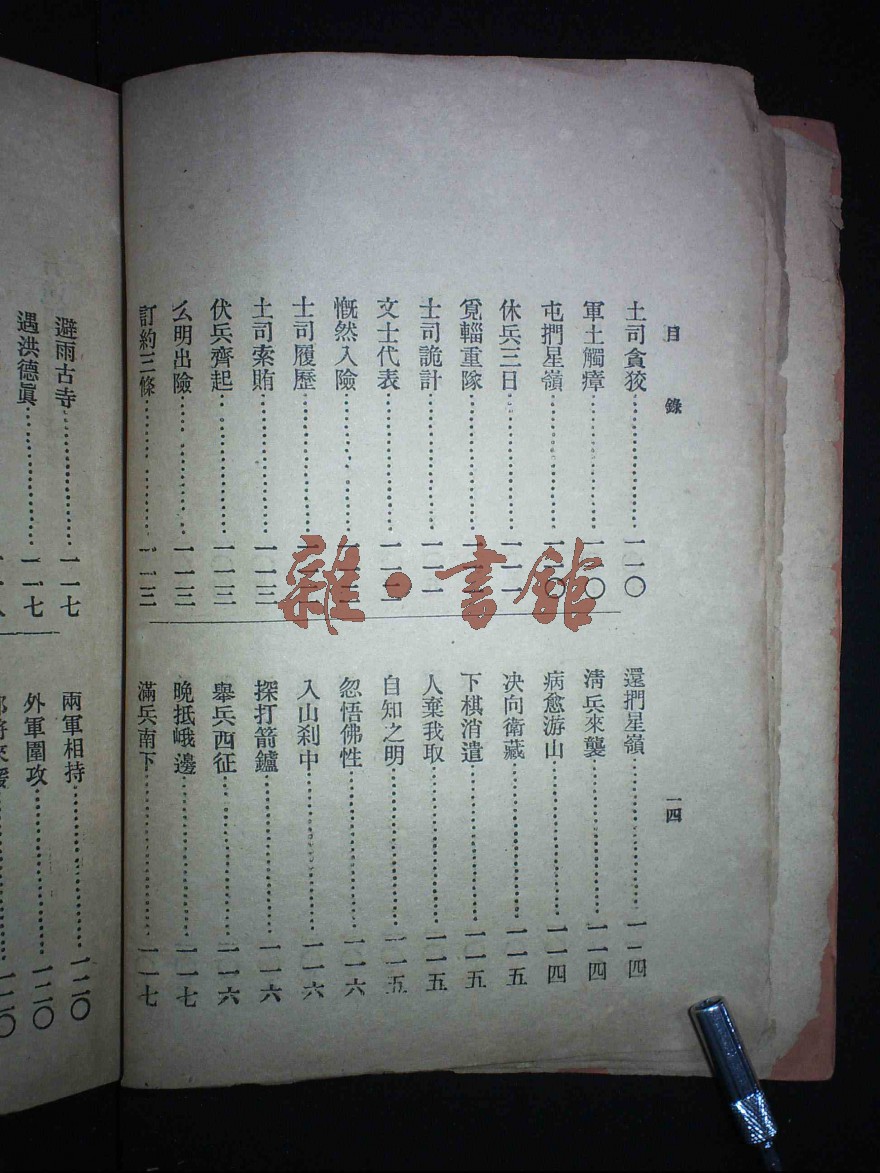 目錄
一四
土司貪狡……一一〇
軍士觸瘴……一一〇
屯捫星嶺……一一〇
休兵三日……一一一
覓輜重隊……一一一
士司詭計……一一一
文士代表……一一二
慨然入險……一一二
士司履歷……一一二
土司索賄……一一三
伏兵齊起……一一三
么明出險……一一三
訂約三條……一一三
還捫星嶺……一一四
淸兵來襲……一一四
病愈游山……一一四
決向衛藏……一一五
下棋消遣……一一五
人棄我取……一一五
自知之明……一一五
忽悟佛性……一一六
入山刹中……一一六
探打箭鑪……一一六
舉兵西征……一一六
晚抵峨邊……一一七
滿兵南下……一一七
避雨古寺……一一七
遇洪德眞……一一七
兩軍相持……一二〇
外軍圍攻……一二〇
雜·書館